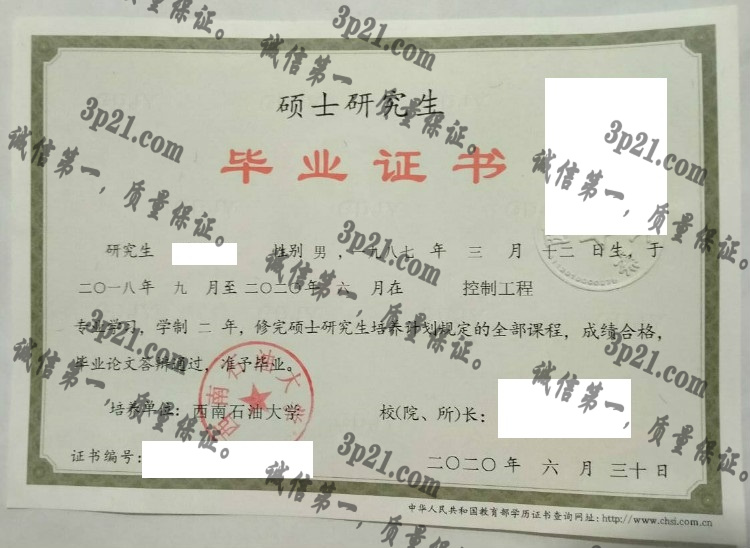 硕士研究生
毕业证书
研究生 性别 男 ，一九八七 年 三 月 十二 日生，于
二〇一八年 九 月至二〇二〇年 六 月在 控制工程
专业学习，学制 二 年，修完硕士研究生培养计划规定的全部课程，成绩合格，
毕业论文答辩通过，准予毕业。
培养单位：西南石油大学 校(院、所)长：
证书编号： 二〇二〇年 六 月 三十 日
中华人民共和国教育部学历证书查询网址：http://www.chsi.com.cn
西南石油大学
3p21.com
诚信第一，质量保证。
3p21.com
诚信第一，质量保证。
3p21.com
诚信第一，质量保证。
3p21.com
诚信第一，质量保证。
3p21.com
诚信第一，质量保证。
3p21.com
诚信第一，质量保证。
3p21.com
诚信第一，质量保证。